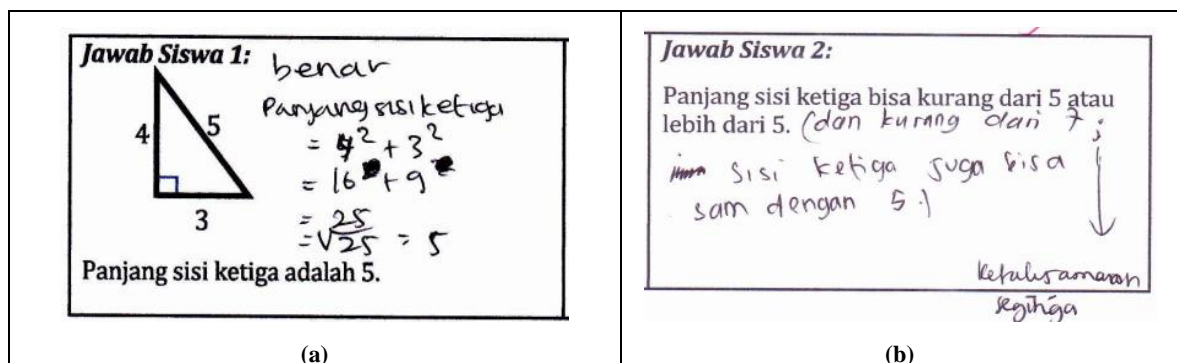 Jawab Siswa 1:
benar
Panjang sisi ketiga
= 4² + 3²
= 16 + 9
= 25
= √25 = 5
4
5
3
Panjang sisi ketiga adalah 5.
(a)
Jawab Siswa 2:
Panjang sisi ketiga bisa kurang dari 5 atau
lebih dari 5. (dan kurang dari 7 ;
sisi ketiga juga bisa
sam dengan 5.)
segitiga
(b)